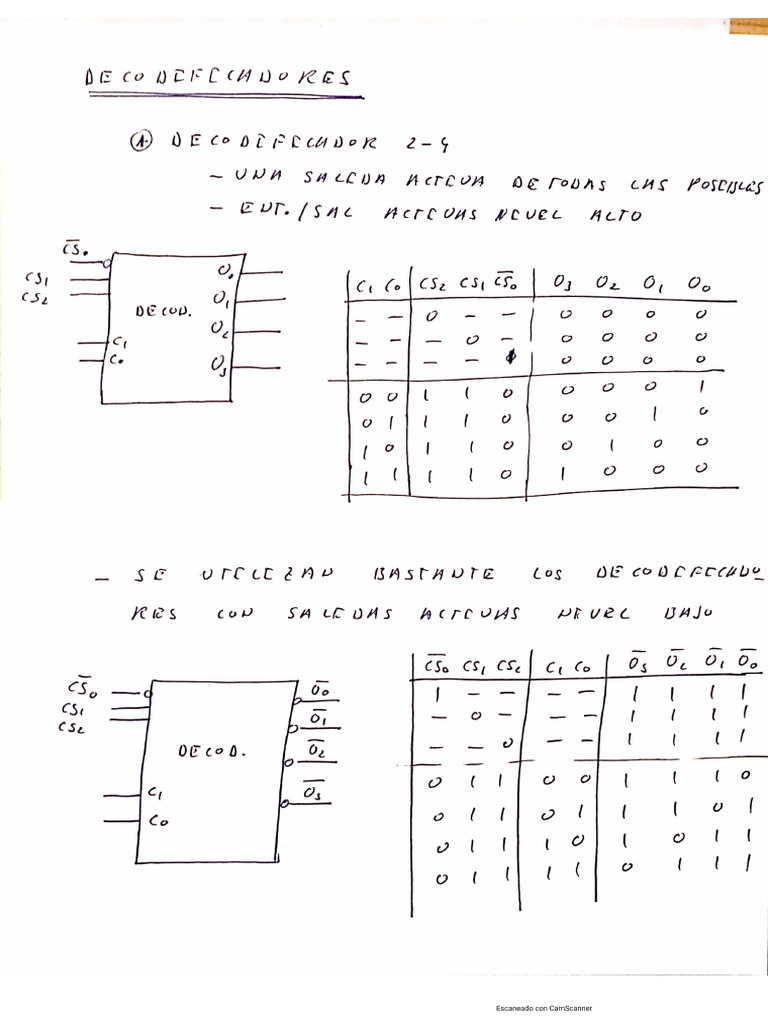 DECODIFICADORES
A. DECODIFICADOR 2-4
- UNA SALIDA ACTIVA DE TODAS LAS POSIBLES
- ENT./SAL ACTIVAS NIVEL ALTO
C̅S̅₀
CS1
CS2
C1
C0
DECOD.
O0
O1
O2
O3
C1 C0 CS2 CS1 C̅S̅₀ O3 O2 O1 O0
- - 0 - - 0 0 0 0
- - - 0 - 0 0 0 0
- - - - 1 0 0 0 0
0 0 1 1 0 0 0 0 1
0 1 1 1 0 0 0 1 0
1 0 1 1 0 0 1 0 0
1 1 1 1 0 1 0 0 0
- SE UTILIZAN BASTANTE LOS DECODIFICADO_
RES CON SALIDAS ACTIVAS NIVEL BAJO
C̅S̅₀
CS1
CS2
C1
C0
DECOD.
O̅0
O̅1
O̅2
O̅3
C̅S̅₀ CS1 CS2 C1 C0 O̅3 O̅2 O̅1 O̅0
1 - - - - 1 1 1 1
- 0 - - - 1 1 1 1
- - 0 - - 1 1 1 1
0 1 1 0 0 1 1 1 0
0 1 1 0 1 1 1 0 1
0 1 1 1 0 1 0 1 1
0 1 1 1 1 0 1 1 1
Escaneado con CamScanner